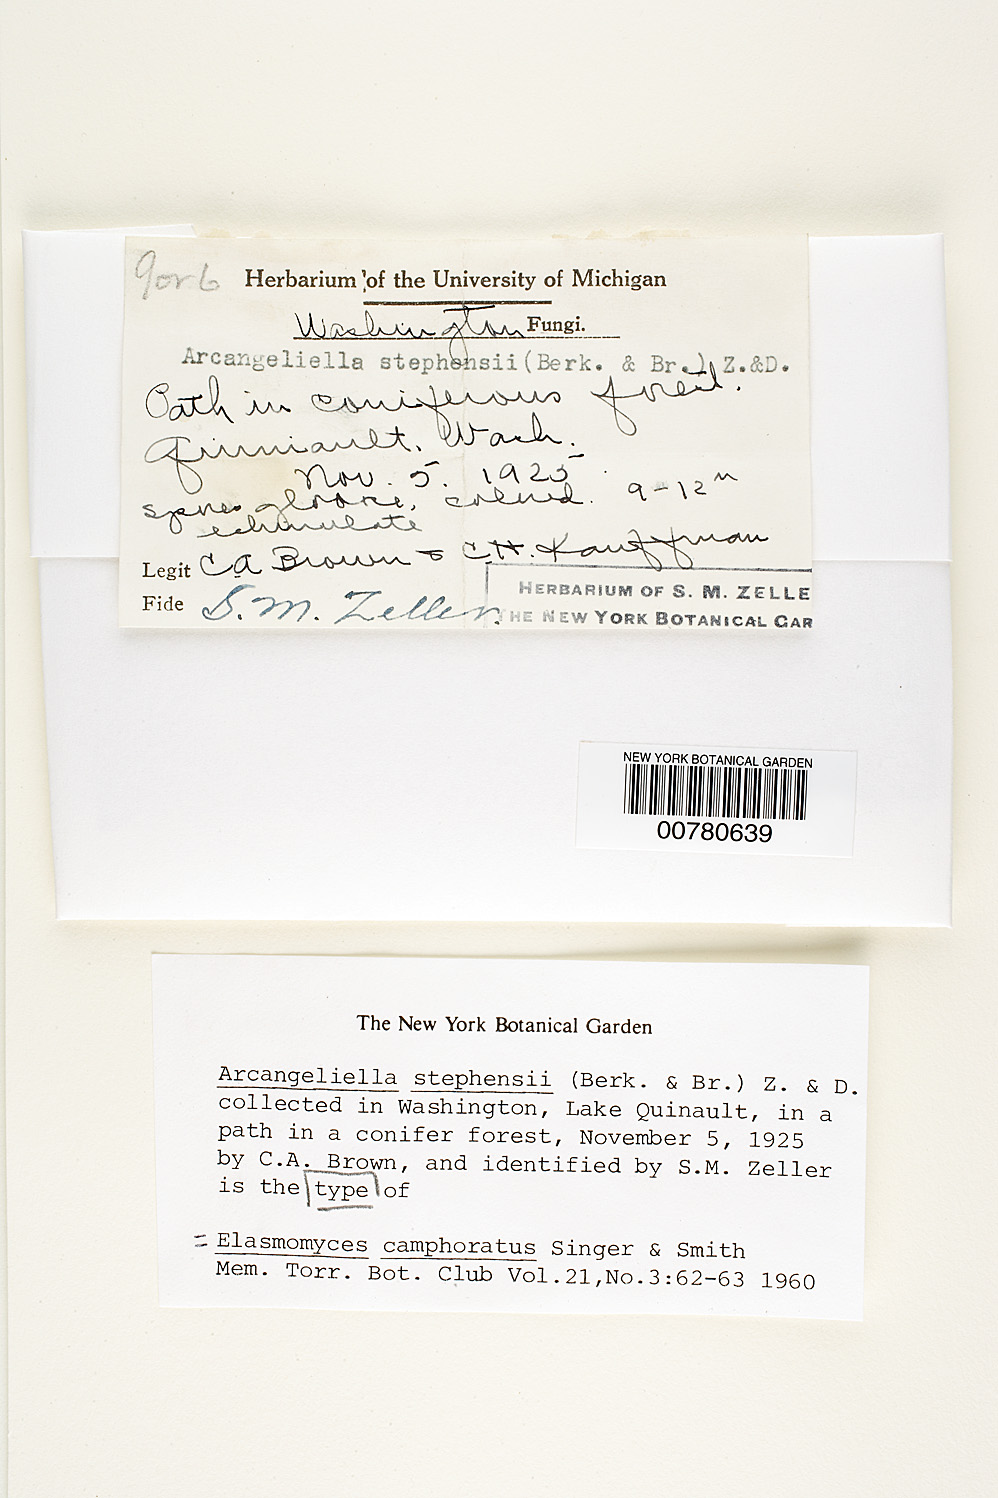 9or6
Herbarium of the University of Michigan
Washington Fungi.
Arcangeliella stephensii (Berk. & Br.) Z.&D.
Path in coniferous forest.
Quiniault, Wash.
Nov. 5. 1925.
spores globose, colored. 9-12 m
echinulate
Legit CA Brown & C.H. Kauffman
Fide S. M. Zeller.
HERBARIUM OF S. M. ZELLE
THE NEW YORK BOTANICAL GAR
NEW YORK BOTANICAL GARDEN
00780639
The New York Botanical Garden
Arcangeliella stephensii (Berk. & Br.) Z. & D.
collected in Washington, Lake Quinault, in a
path in a conifer forest, November 5, 1925
by C.A. Brown, and identified by S.M. Zeller
is the type of
= Elasmomyces camphoratus Singer & Smith
Mem. Torr. Bot. Club Vol.21,No.3:62-63 1960